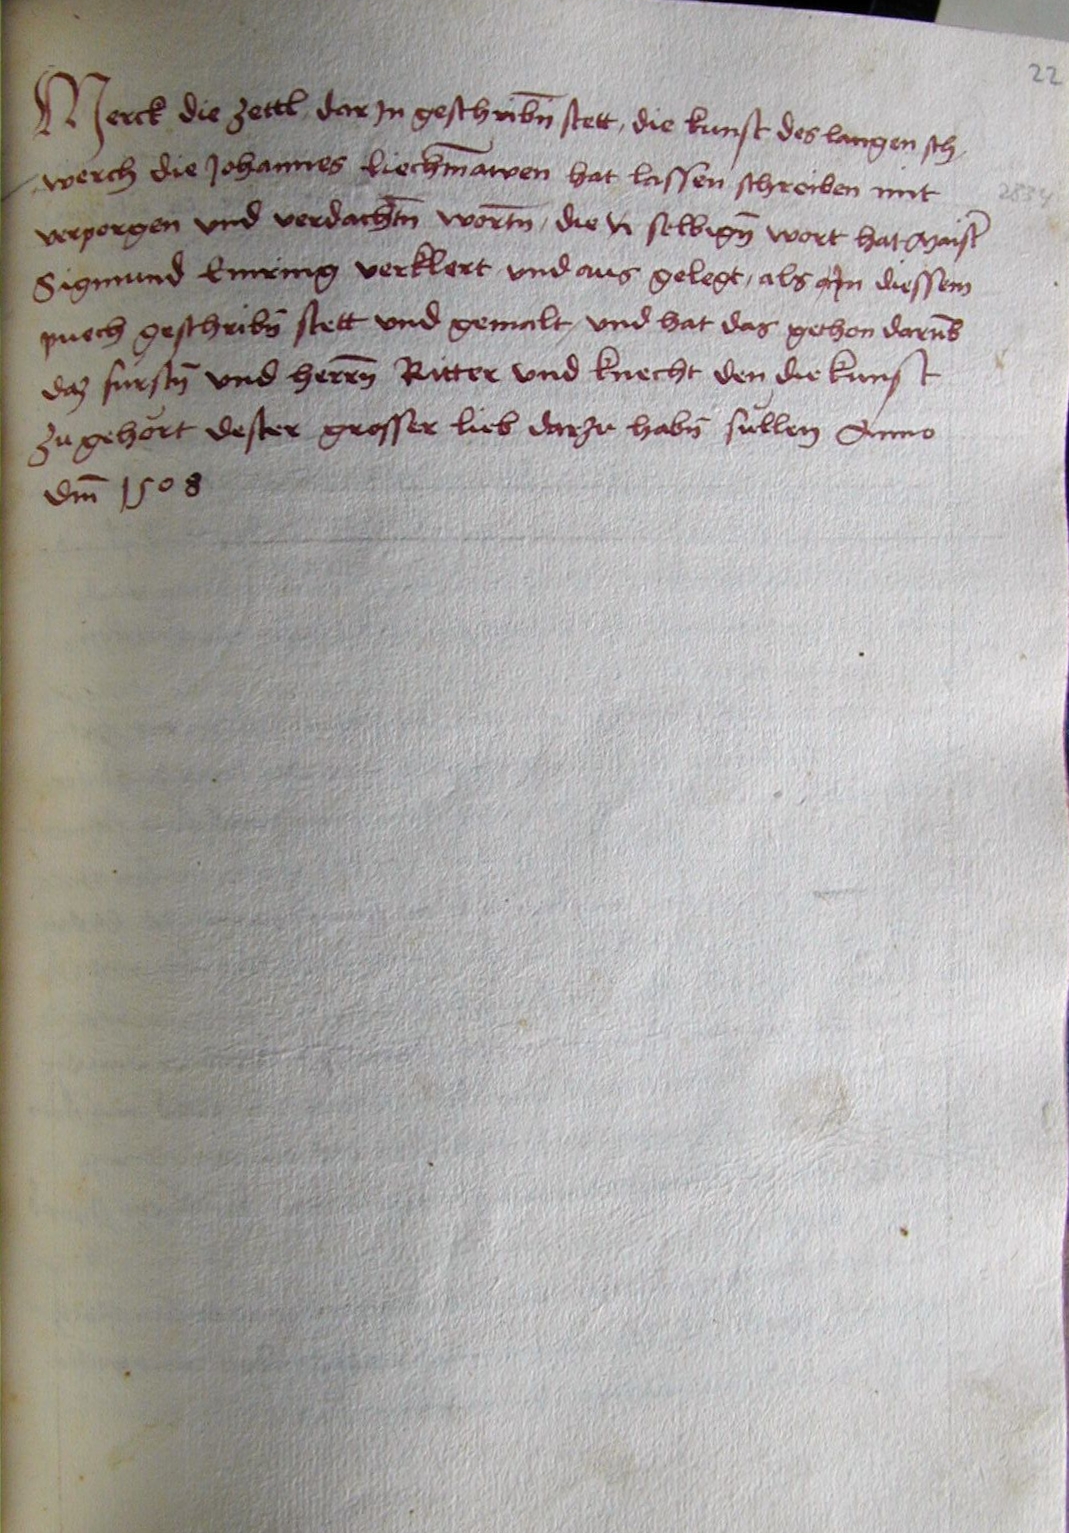 22
Merck die zettl dar Jn geschribn̄ stett, die kunst des langen sch
werch die Johannes Liechtn̄awen hat lassen schreiben mit
2834
verporgen und verdachtn̄ wortn̄, die selbign̄ wort hat Maist̄
Sigmund Emring verklert und aus gelegt, als Jn diessem
puech geschribn̄ stett und gemalt, und hat das gethon darūb
daz furstn̄ und herrn̄ Ritter und knecht den die kunst
zu gehort dester grosser lieb darzu habn̄ sullen Anno
dm̄ 1508